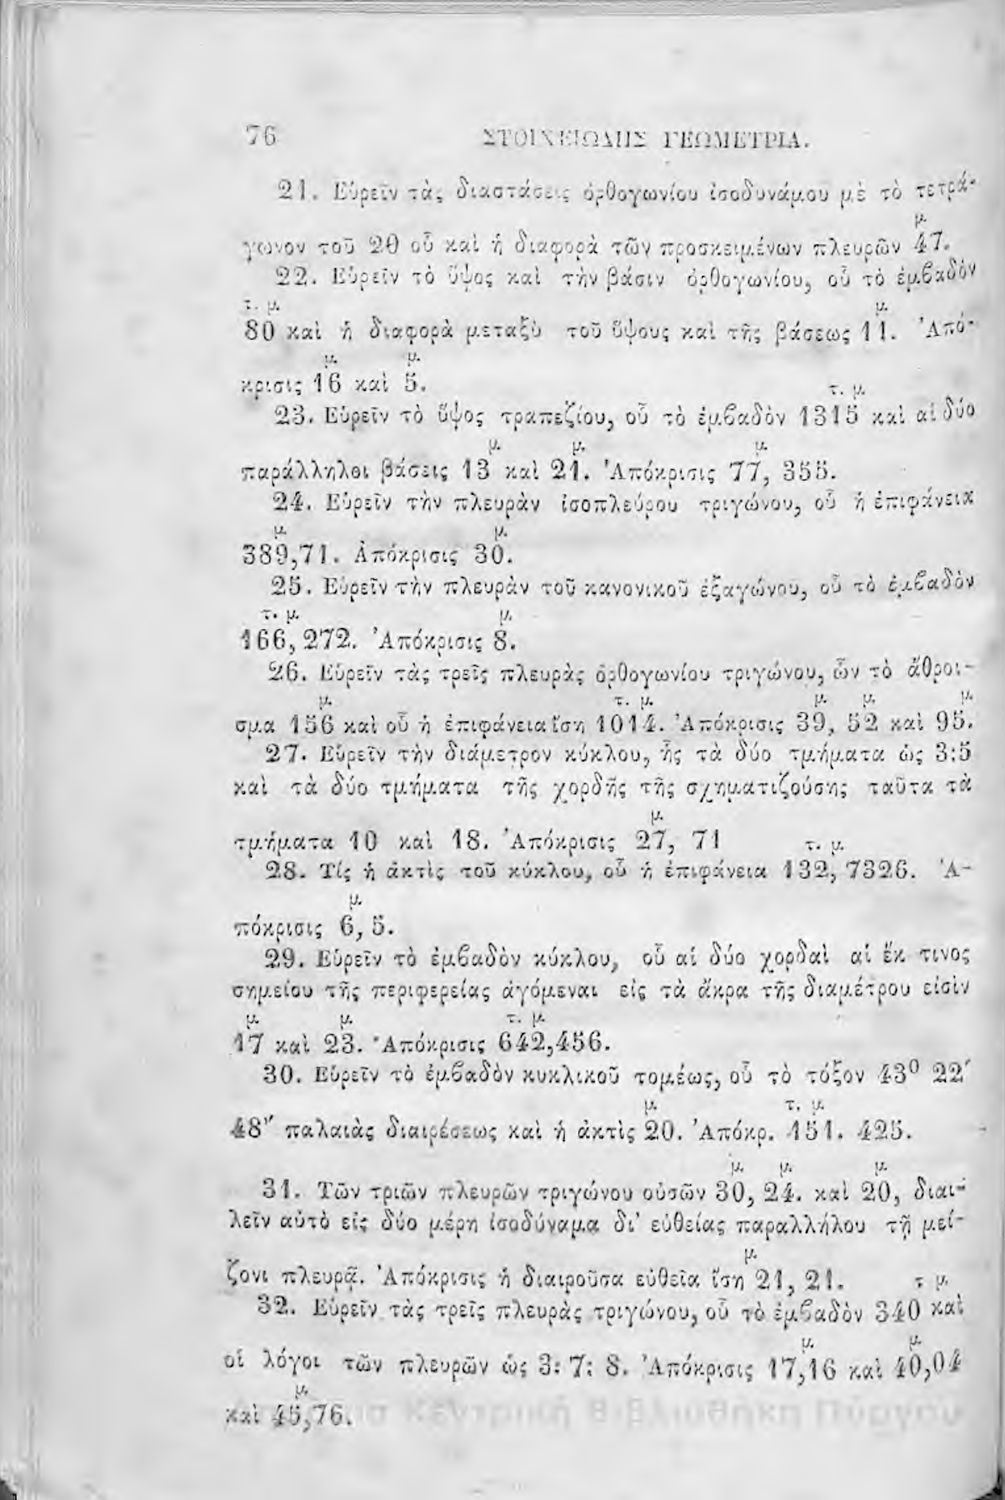 76 ΣΤΟΙΧΕΙΩΔΗΣ ΓΕΩΜΕΤΡΙΑ.
21. Εὑρεῖν τὰς διαστάσεις ὀρθογωνίου ἰσοδυνάμου μὲ τὸ τετρά-
μ.
γωνον τοῦ 20 οὗ καὶ ἡ διαφορὰ τῶν προσκειμένων πλευρῶν 47.
22. Εὑρεῖν τὸ ὕψος καὶ τὴν βάσιν ὀρθογωνίου, οὗ τὸ ἐμβαδὸν
τ. μ. μ.
80 καὶ ἡ διαφορὰ μεταξὺ τοῦ ὕψους καὶ τῆς βάσεως 11. Ἀπό-
μ. μ.
κρισις 16 καὶ 5.
τ. μ.
23. Εὑρεῖν τὸ ὕψος τραπεζίου, οὗ τὸ ἐμβαδὸν 1315 καὶ αἱ δύο
μ. μ. μ.
παράλληλοι βάσεις 13 καὶ 21. Ἀπόκρισις 77, 355.
24. Εὑρεῖν τὴν πλευρὰν ἰσοπλεύρου τριγώνου, οὗ ἡ ἐπιφάνεια
μ. μ.
389,71. Ἀπόκρισις 30.
25. Εὑρεῖν τὴν πλευρὰν τοῦ κανονικοῦ ἑξαγώνου, οὗ τὸ ἐμβαδὸν
τ. μ. μ.
166, 272. Ἀπόκρισις 8.
26. Εὑρεῖν τὰς τρεῖς πλευρὰς ὀρθογωνίου τριγώνου, ὧν τὸ ἄθροι-
μ. τ. μ. μ. μ. μ.
σμα 156 καὶ οὗ ἡ ἐπιφάνεια ἴση 1014. Ἀπόκρισις 39, 52 καὶ 95.
27. Εὑρεῖν τὴν διάμετρον κύκλου, ἧς τὰ δύο τμήματα ὡς 3:5
καὶ τὰ δύο τμήματα τῆς χορδῆς τῆς σχηματιζούσης ταῦτα τὰ
μ.
τμήματα 10 καὶ 18. Ἀπόκρισις 27, 71
τ. μ.
28. Τίς ἡ ἀκτὶς τοῦ κύκλου, οὗ ἡ ἐπιφάνεια 132, 7326. Ἀ-
μ.
πόκρισις 6, 5.
29. Εὑρεῖν τὸ ἐμβαδὸν κύκλου, οὗ αἱ δύο χορδαὶ αἱ ἔκ τινος
σημείου τῆς περιφερείας ἀγόμεναι εἰς τὰ ἄκρα τῆς διαμέτρου εἰσὶν
μ. μ. τ. μ.
17 καὶ 23. Ἀπόκρισις 642,456.
30. Εὑρεῖν τὸ ἐμβαδὸν κυκλικοῦ τομέως, οὗ τὸ τόξον 43⁰ 22′
μ. τ. μ.
48″ παλαιᾶς διαιρέσεως καὶ ἡ ἀκτὶς 20. Ἀπόκρ. 151. 425.
μ. μ. μ.
31. Τῶν τριῶν πλευρῶν τριγώνου οὐσῶν 30, 24. καὶ 20, διαι-
λεῖν αὐτὸ εἰς δύο μέρη ἰσοδύναμα δι' εὐθείας παραλλήλου τῇ μεί-
μ.
ζονι πλευρᾷ. Ἀπόκρισις ἡ διαιροῦσα εὐθεῖα ἴση 21, 21.
τ μ.
32. Εὑρεῖν τὰς τρεῖς πλευρὰς τριγώνου, οὗ τὸ ἐμβαδὸν 340 καὶ
μ. μ.
οἱ λόγοι τῶν πλευρῶν ὡς 3: 7: 8. Ἀπόκρισις 17,16 καὶ 40,04
μ.
καὶ 45,76.
Κεντρική Βιβλιοθήκη Πύργου